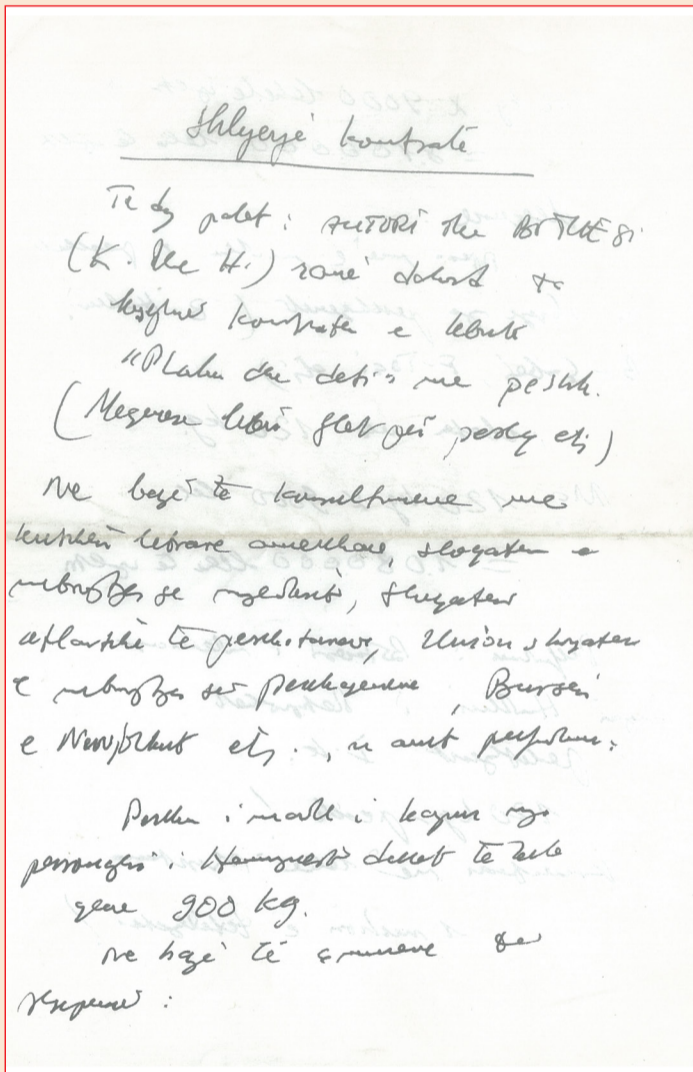 Shlyerje kontratë
Te dy palet: AUTORI dhe BOTUESI
(K. dhe H.) ranë dakort ta
kontraten e librit
"Plaku dhe deti" me peshk.
(Megenese libri flet për peshq etj)
Ne bazë të konsultimeve me
librare amerikane, shoqaten e
mbrojtjes se, shoqaten
atlantike të peshkatareve, Union shoqaten
e mbrojtjes së, Bursën
e Newjorkut etj., u arrit perfundimi:
Peshku i madh i kapur nga
personazhi i Hemingueit duhet të ketë
qene 900 kg.
Ne bazë të çmimeve
: